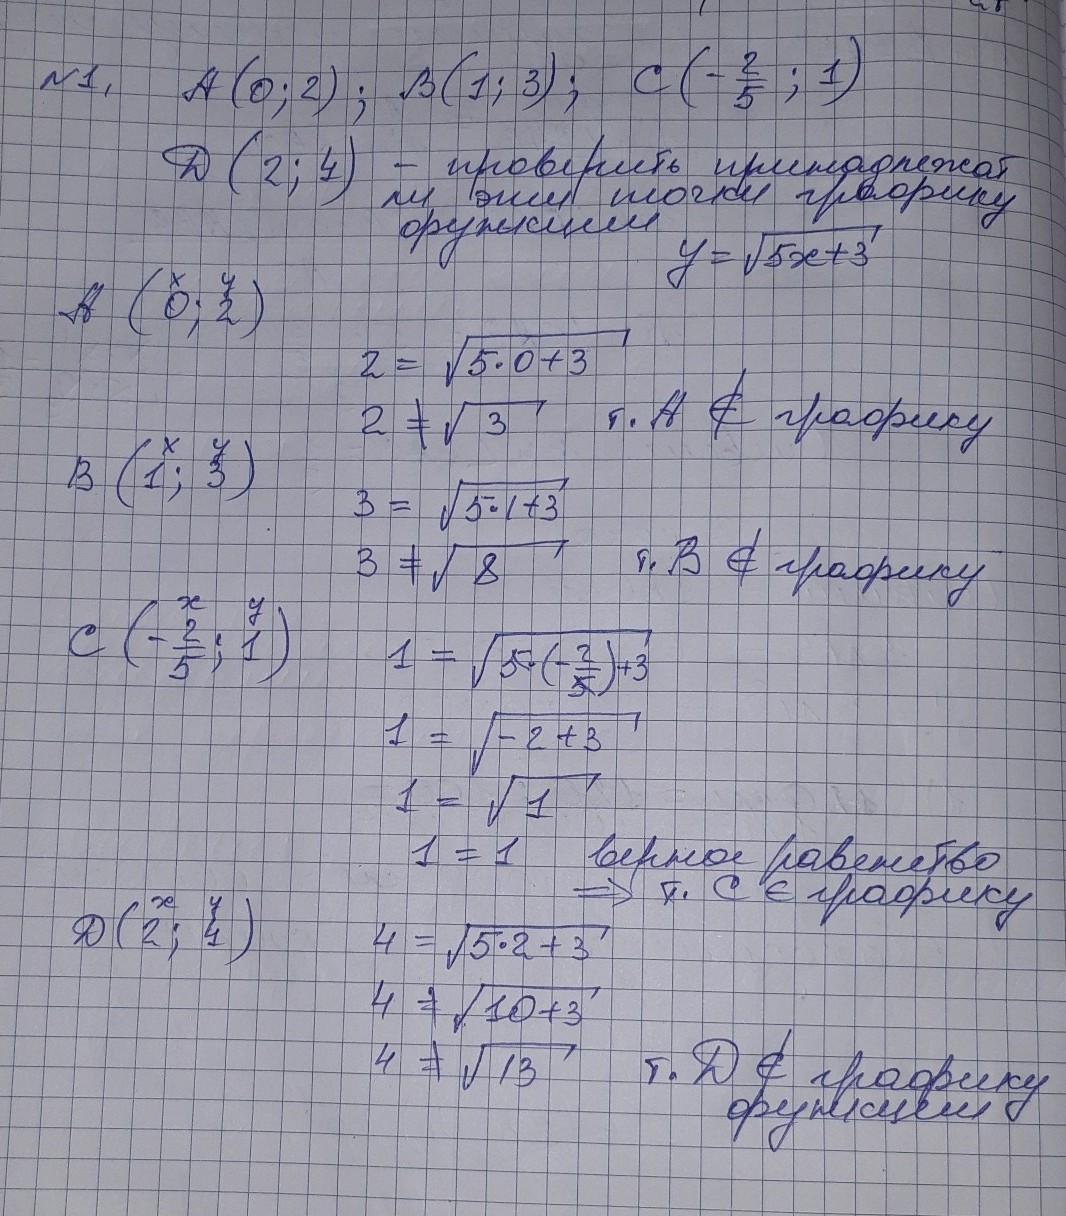 №1. А(0;2); В(1;3); С(-2/5; 1)
Д(2;4) - проверить принадлежат
ли эти точки графику
функции
y = √(5x+3)
А (0; 2)
x y
2 = √(5·0+3)
2 ≠ √3 т. А ∉ графику
В (1; 3)
x y
3 = √(5·1+3)
3 ≠ √8 т. В ∉ графику
С (-2/5; 1)
x y
1 = √(5·(-2/5)+3)
1 = √(-2+3)
1 = √1
1 = 1 верное равенство
=> т. С ∈ графику
Д (2; 4)
x y
4 = √(5·2+3)
4 ≠ √(10+3)
4 ≠ √13 т. Д ∉ графику
функции